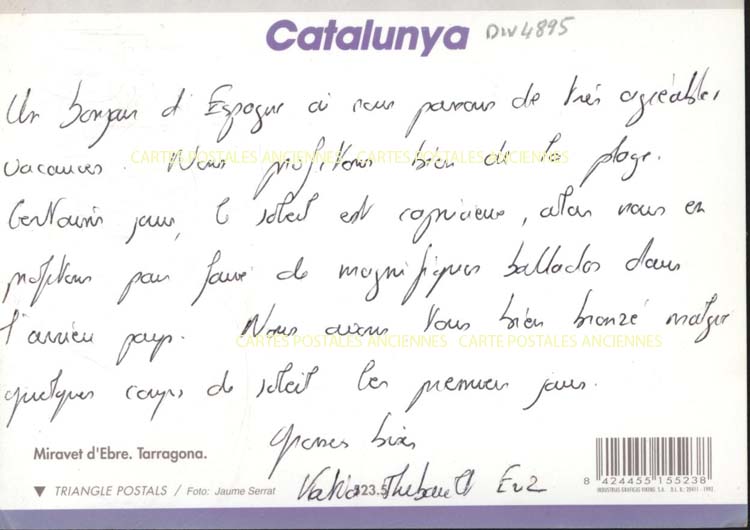 Catalunya DIV4895
Un bonjour d'Espagne où nous passons de très agréables
vacances. Nous profitons bien de la plage.
CARTES POSTALES ANCIENNES CARTES POSTALES ANCIENNES
Certains jours, le soleil est capricieux, alors nous en
profitons pour faire de magnifiques ballades dans
l'arrière pays. Nous avons tous bien bronzé malgré
CARTES POSTALES ANCIENNES CARTE POSTALES ANCIENNES
quelques coups de soleil les premiers jours.
Grosses bises
Miravet d'Ebre. Tarragona.
▼ TRIANGLE POSTALS / Foto: Jaume Serrat
323.5
Thebault
8 424455 155238
INDUSTRIAS GRAFICAS VIKING, S.A. D.L. B.